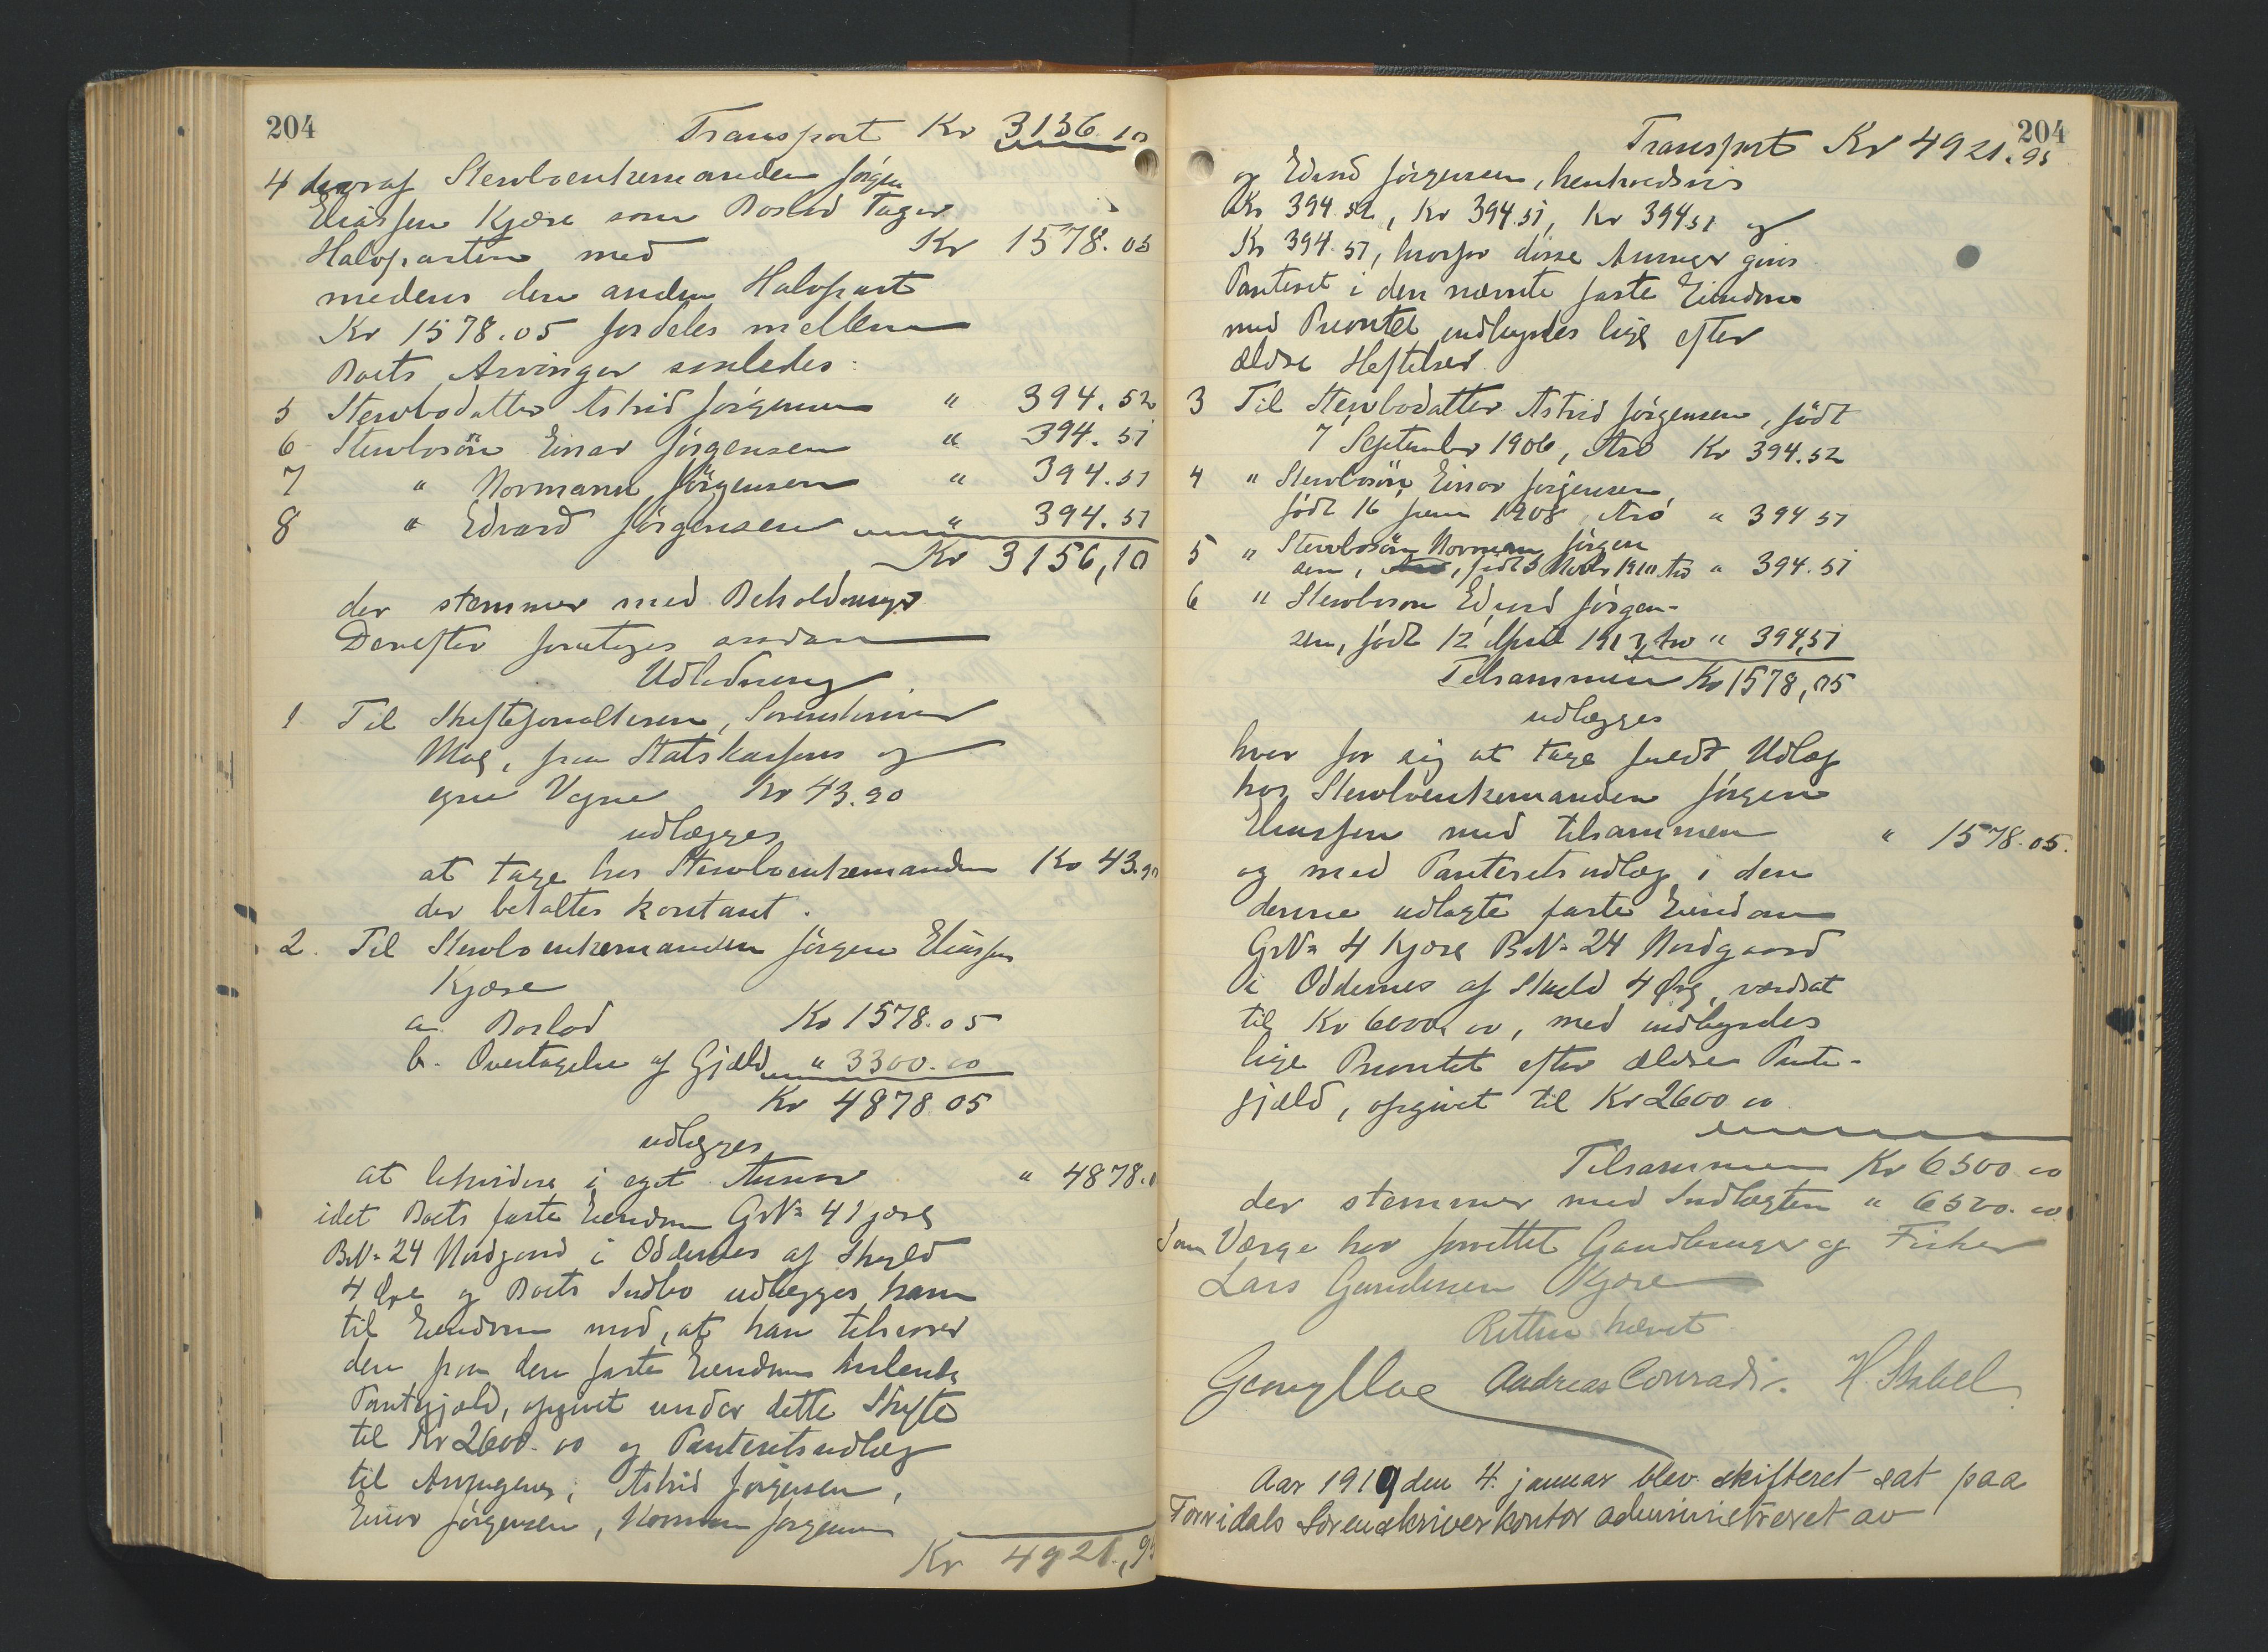 204
Transport Kr 3156.10
4 hvoraf Stervboenkemanden Jörgen
Eliassen Kjære som Boslod tager
Halvparten med Kr 1578.05
medens den anden Halvpart
Kr 1578.05 fordeles mellem
Boets Arvinger saaledes:
5 Stervbodatter Astrid Jörgensen " 394.52
6 Stervbosön Einar Jörgensen " 394.51
7 " Normann Jörgensen " 394.51
8 " Edvard Jörgensen " 394.51
Kr 3156,10
der stemmer med Beholdningen.
Derefter foretages saadan
Udlodning.
1 Til Skifteforvalteren, Sorenskriver
Moe, paa Statskassens og
egne Vegne Kr 43.90
udlægges
at tage hos Stervboenkemanden Kr 43.90
der betaltes kontant.
2. Til Stervboenkemanden Jörgen Eliassen
Kjære
a. Boslod Kr 1578.05
b. Overtagelse af Gjæld " 3300.00
Kr 4878.05
udlægges
at beholde i eget Ansvar " 4878.0
idet Boets faste Eiendom GrNo 4 Kjære
BrNo 24 Nordgaard i Oddernes af Skyld
4 Øre og Boets Indbo udlægges ham
til Eiendom mod, at han tilsvarer
den paa den faste Eiendom heftende
Pantegjæld, opgivet under dette Skifte
til Kr 2600.00 og Panteretsudlæg
til Arvingerne, Astrid Jörgensen,
Einar Jörgensen, Norman Jörgensen
Kr 4921,95
204
Transport Kr 4921.95
og Edvard Jörgensen, henholdsvis
Kr 394.52, Kr 394.51, Kr 394.51 og
Kr 394.51, hvorfor disse Arvinger gives
Panteret i den nævnte faste Eiendom
med Prioritet indbyrdes lige efter
ældre Heftelser.
3 Til Stervbodatter Astrid Jörgensen, födt
7 September 1906, Arv Kr 394.52
4 " Stervbosön Einar Jörgensen,
födt 16 1908, Arv " 394.51
5 " Stervbosön Norman Jörgen
sen, födt 3 1910 Arv " 394.51
6 " Stervboson Edvard Jörgen-
sen, födt 12 April 1913, Arv " 394,51
Tilsammen Kr 1578,05
udlægges
hver for sig at tage fuldt Udlæg
hos Stervboenkemanden Jörgen
Eliassen med tilsammen " 1578.05.
og med Panteretsudlæg i den
denne udlagte faste Eiendom
GrNo 4 Kjære BrNo 24 Nordgaard
i Oddernes af Skyld 4 Øre, værdsat
til Kr 6000.00, med indbyrdes
lige Prioritet efter ældre Pante-
gjæld, opgivet til Kr 2600.00
Tilsammen Kr 6500.00
der stemmer med Indtægten " 6500.00
Som Værge har forrettet Gaardbruger og Fisker
Lars Gundersen Kjære
Retten hævet
Georg Moe Andreas Conradi. H. Stabel
Aar 1919 den 4. januar blev skifteret sat paa
Torridals Sorenskriverkontor administreret av